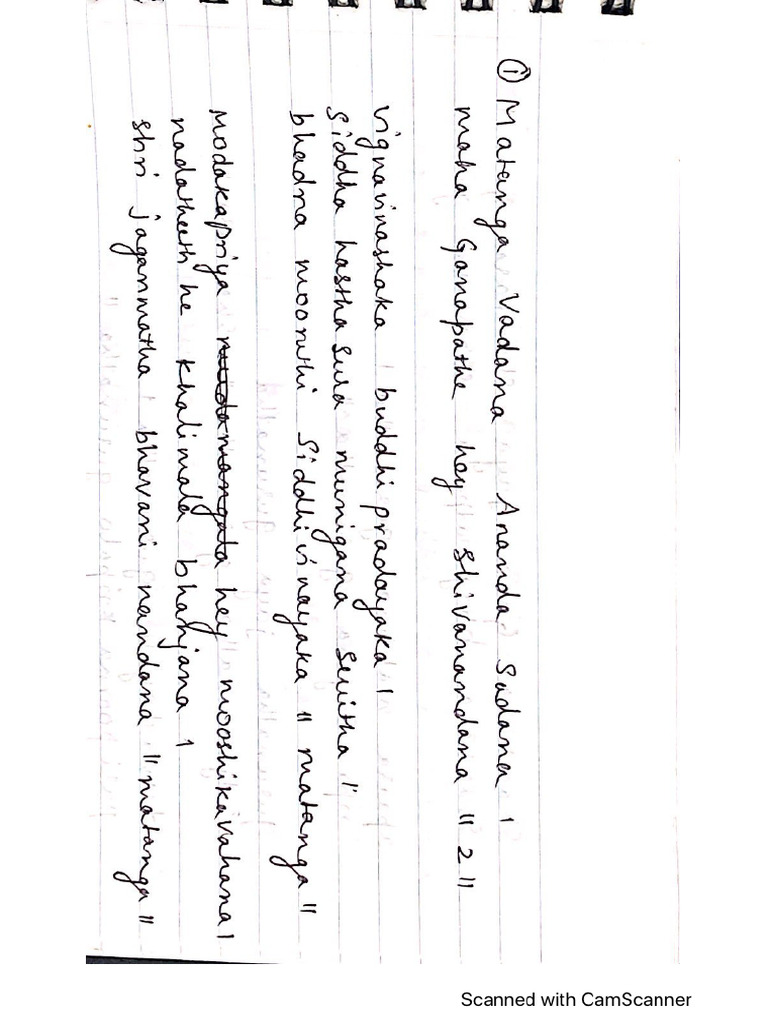 ① Matanga Vadana Ananda Sadana |
maha Ganapathe hey shivanandana || 2 ||
vignavinashaka | buddhi pradayaka |
siddha hastha sura munigana sevitha |
bhadra moorthi siddhi vinayaka || matanga ||
Modakapriya hey mooshikavahana |
nadatheeth he khalimala bhanjana |
shri jaganmatha bhavani nandana || matanga ||
Scanned with CamScanner